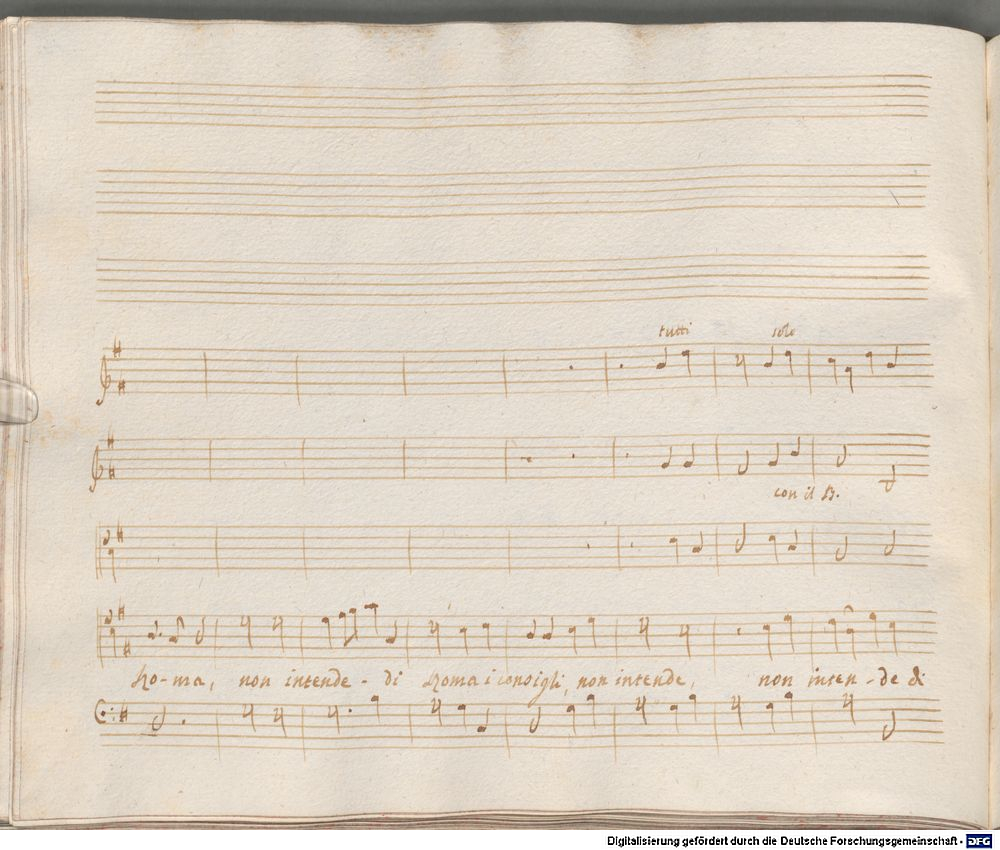 tutti solo
con il B.
Ro-ma, non intende-di Roma i consigli, non intende, non inten-de di
Digitalisierung gefördert durch die Deutsche Forschungsgemeinschaft - DFG